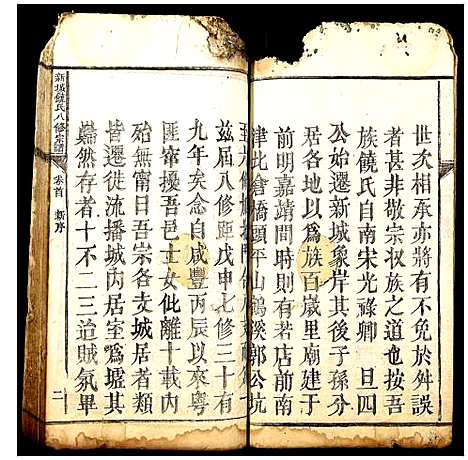 世次相承亦將有不免於舛誤
者甚非敬宗收族之道也按吾
族饒氏自南宋光祿卿 旦四
公始遷新城象岸其後子孫分
居各地以爲族百歲里廟建于
前明嘉靖間時則有若店前南
津北倉橋頭平山鶴溪郭公坑
茲屆八修距戊申七修三十有
九年矣念自咸豐丙辰以來粤
匪竄擾吾邑士女仳離十載內
殆無甯日吾宗各支城居者類
皆遷徙流播城內居室爲墟其
巋然存者十不二三迨賊氛畢
新城饒氏八修宗譜
卷首 新序
二